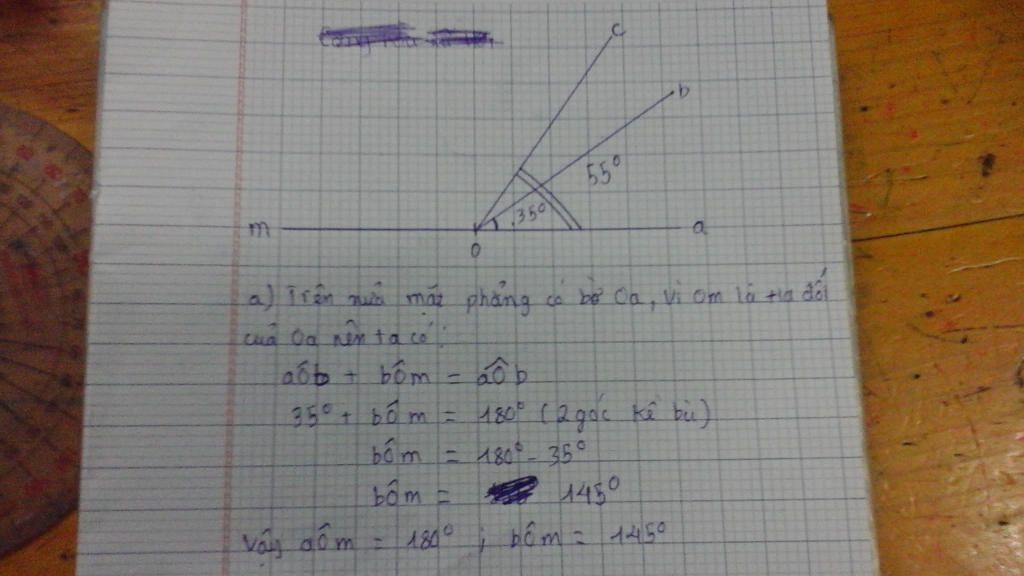 c
b
55°
35°
m
a
O
a) Trên nửa mặt phẳng có bờ Oa, vì Om là tia đối
của Oa nên ta có:
aÔb + bÔm = aÔb
35° + bÔm = 180° (2 góc kề bù)
bÔm = 180° - 35°
bÔm = 145°
Vậy aÔm = 180° ; bÔm = 145°